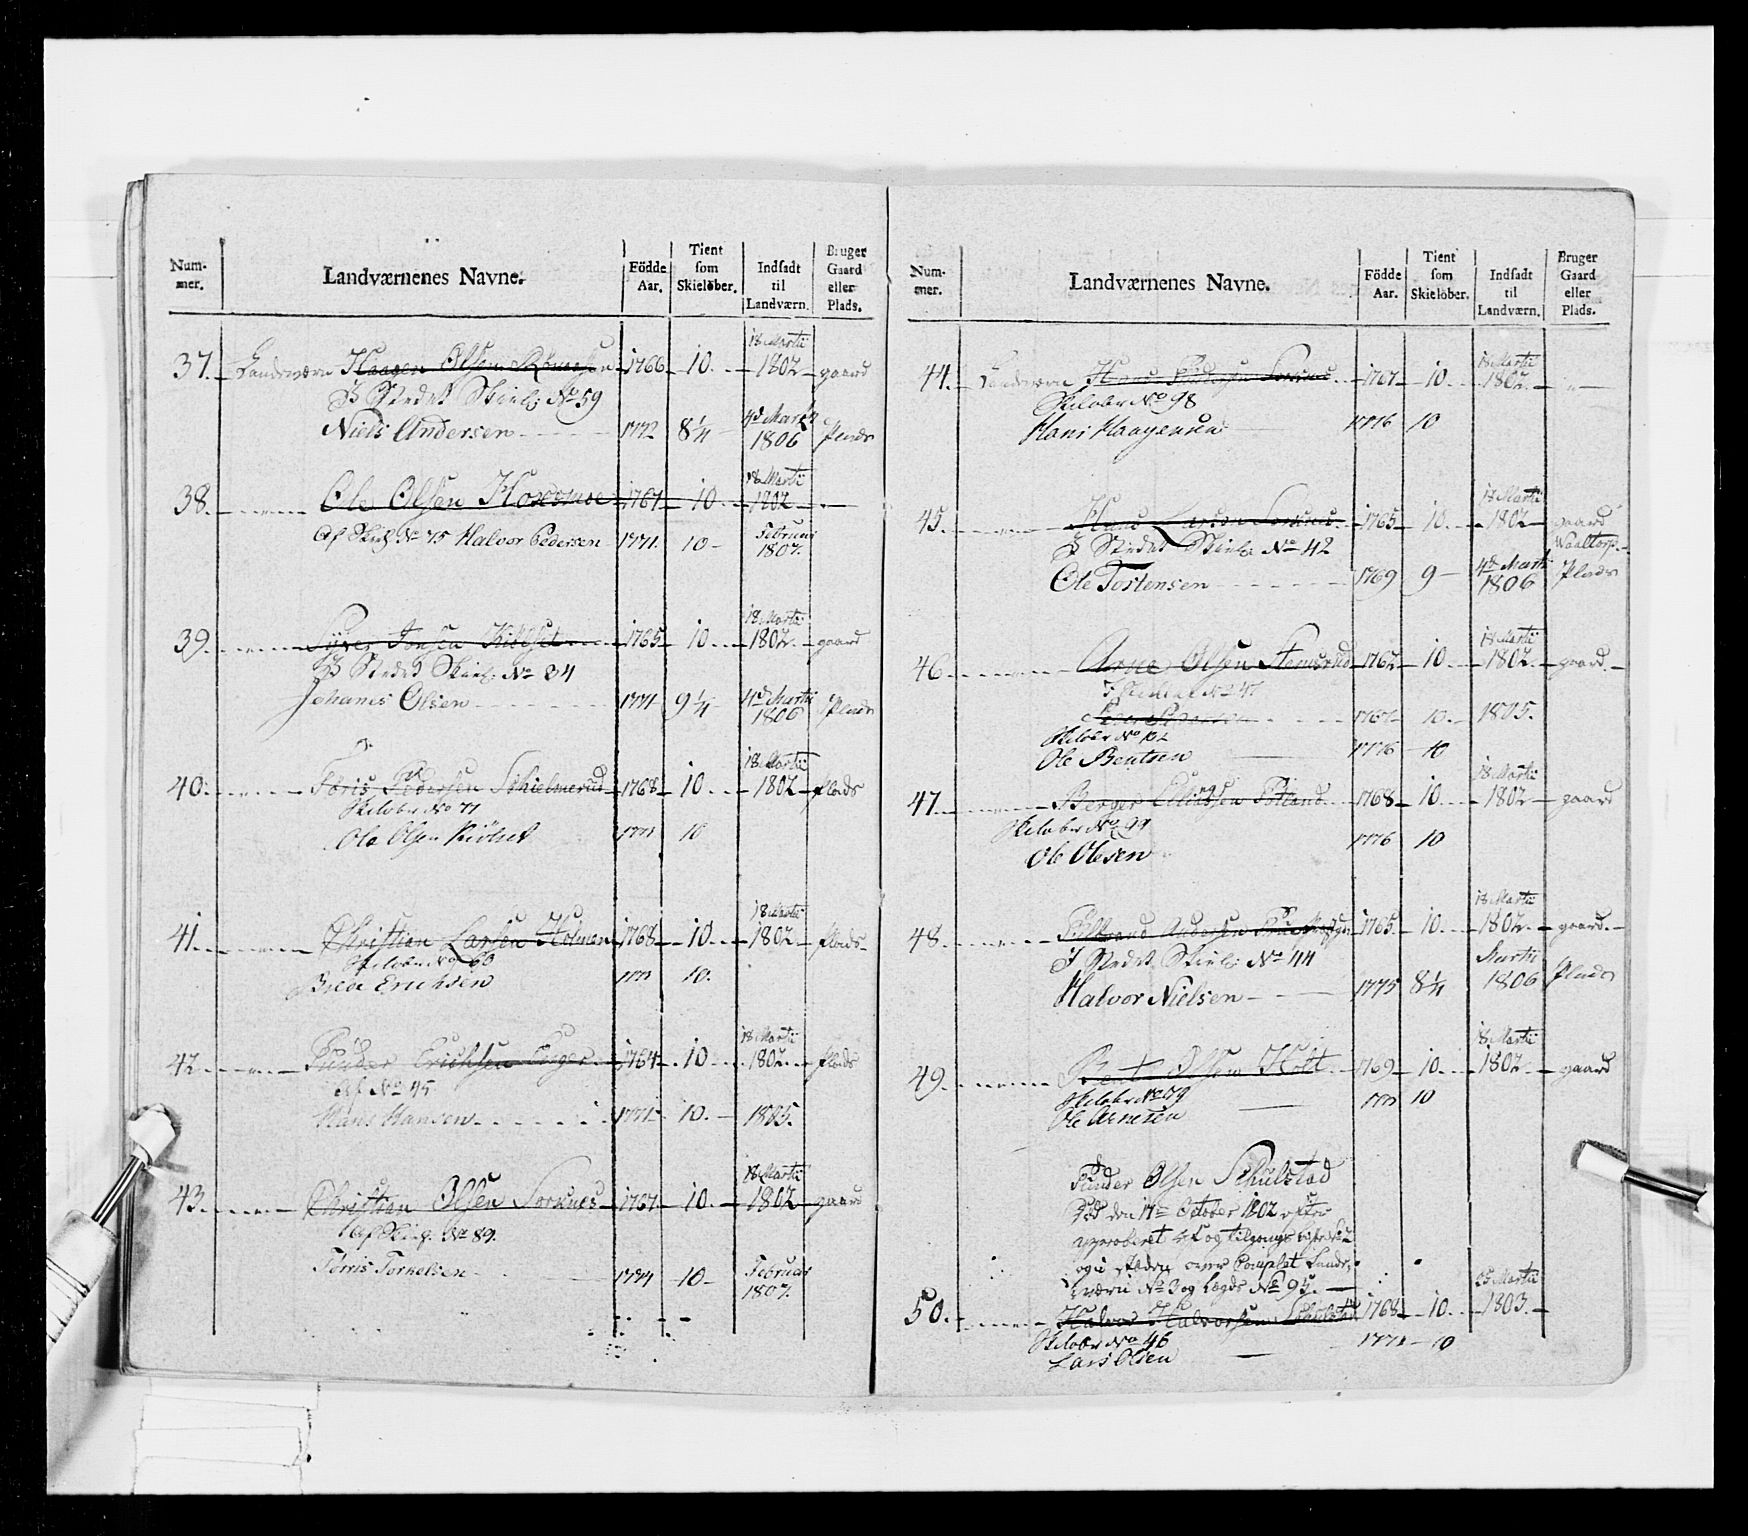 Num-
mer.
Landværnenes Navne.
Födde
Aar.
Tient
som
Skielöber.
Indsadt
til
Landværn.
Bruger
Gaard
eller
Plads.
37. Landeværn Haagen Olsen 1766 10. 18 Martii 1802 gaard
I Stedet Skiel: No 59
Niels Andersen 1772 8¼ 4d Martii 1806 Plads
38. Ole Olsen 1767 10 18 Martii 1802
Af Skiel No 75 Halvor Pedersen 1771. 10 Februar 1807.
39. Syver Jonsen Kiölset 1765 10. 18 Martii 1802. gaard
I Stedet Skiel: No 34
Johanes Olsen 1771 9¼ 4d Martii 1806 Plads
40. Töris Pedersen Schielmerud 1768 10. 18 Martii 1802 plads
Skilober No 71
Ole Olsen Kiölset 10
41. Christian Larsen Holmen 1768 10. 18 Martii 1802. plads.
Skilober No 60
Brede Erichsen 10.
42. Gunder Erichsen 1764 10 18 Martii 1802. plads
Af No 45
Hans Hansen 1771 10. 1805.
43. Christian Olsen Sorknes 1767 10. 18 Martii 1802 gaard
Af Skiel. No 89.
Törris Torkelsen 1774 10 Februar 1807.
Num-
mer.
Landværnenes Navne.
Födde
Aar.
Tient
som
Skielöber.
Indsadt
til
Landværn.
Bruger
Gaard
eller
Plads.
44. Landeværn Hans Pedersen Sorknes 1767 10. 18 Martii 1802.
Skilober No 98
Hans Haagensen 1776 10
45. Hans Larsen Sorknes 1765 10. 18 Martii 1802 gaard
I Stedet Skiel: No 42
Ole Tostensen 1769 9 4d Martii 1806 Plads
46. Arne Olsen Stemsrud 1762 10. 18 Martii 1802. gaard.
No 47
1767 10. 1805.
Skilober No 102
Ole Bentsen 1776 10
47. Berger Eliassen 1768 10. 18 Martii 1802 gaard
Skilober No 99
Ole Olesen 1776 10
48. Andersen 1765 10. 18 Martii 1802. gaard.
I Stedet Skiel: No 44
Halvor Nielsen 1775 8¼ Martii 1806 Plads
49. Bent Olsen Holt 1769 10. 18 Martii 1802. gaard
Skilober No 79
Ole Arnesen 10
Gunder Olsen Schulstad
Död den 17de October 1802 efter
approberet og tilgangs
og i steden over Complet Lande-
værn No 3 og Lægds No 95.
50. Halvor Halvorsen Schulstad 1768 10. 25 Martii 1803.
Skilober No 46
Lars Olsen 1771 10